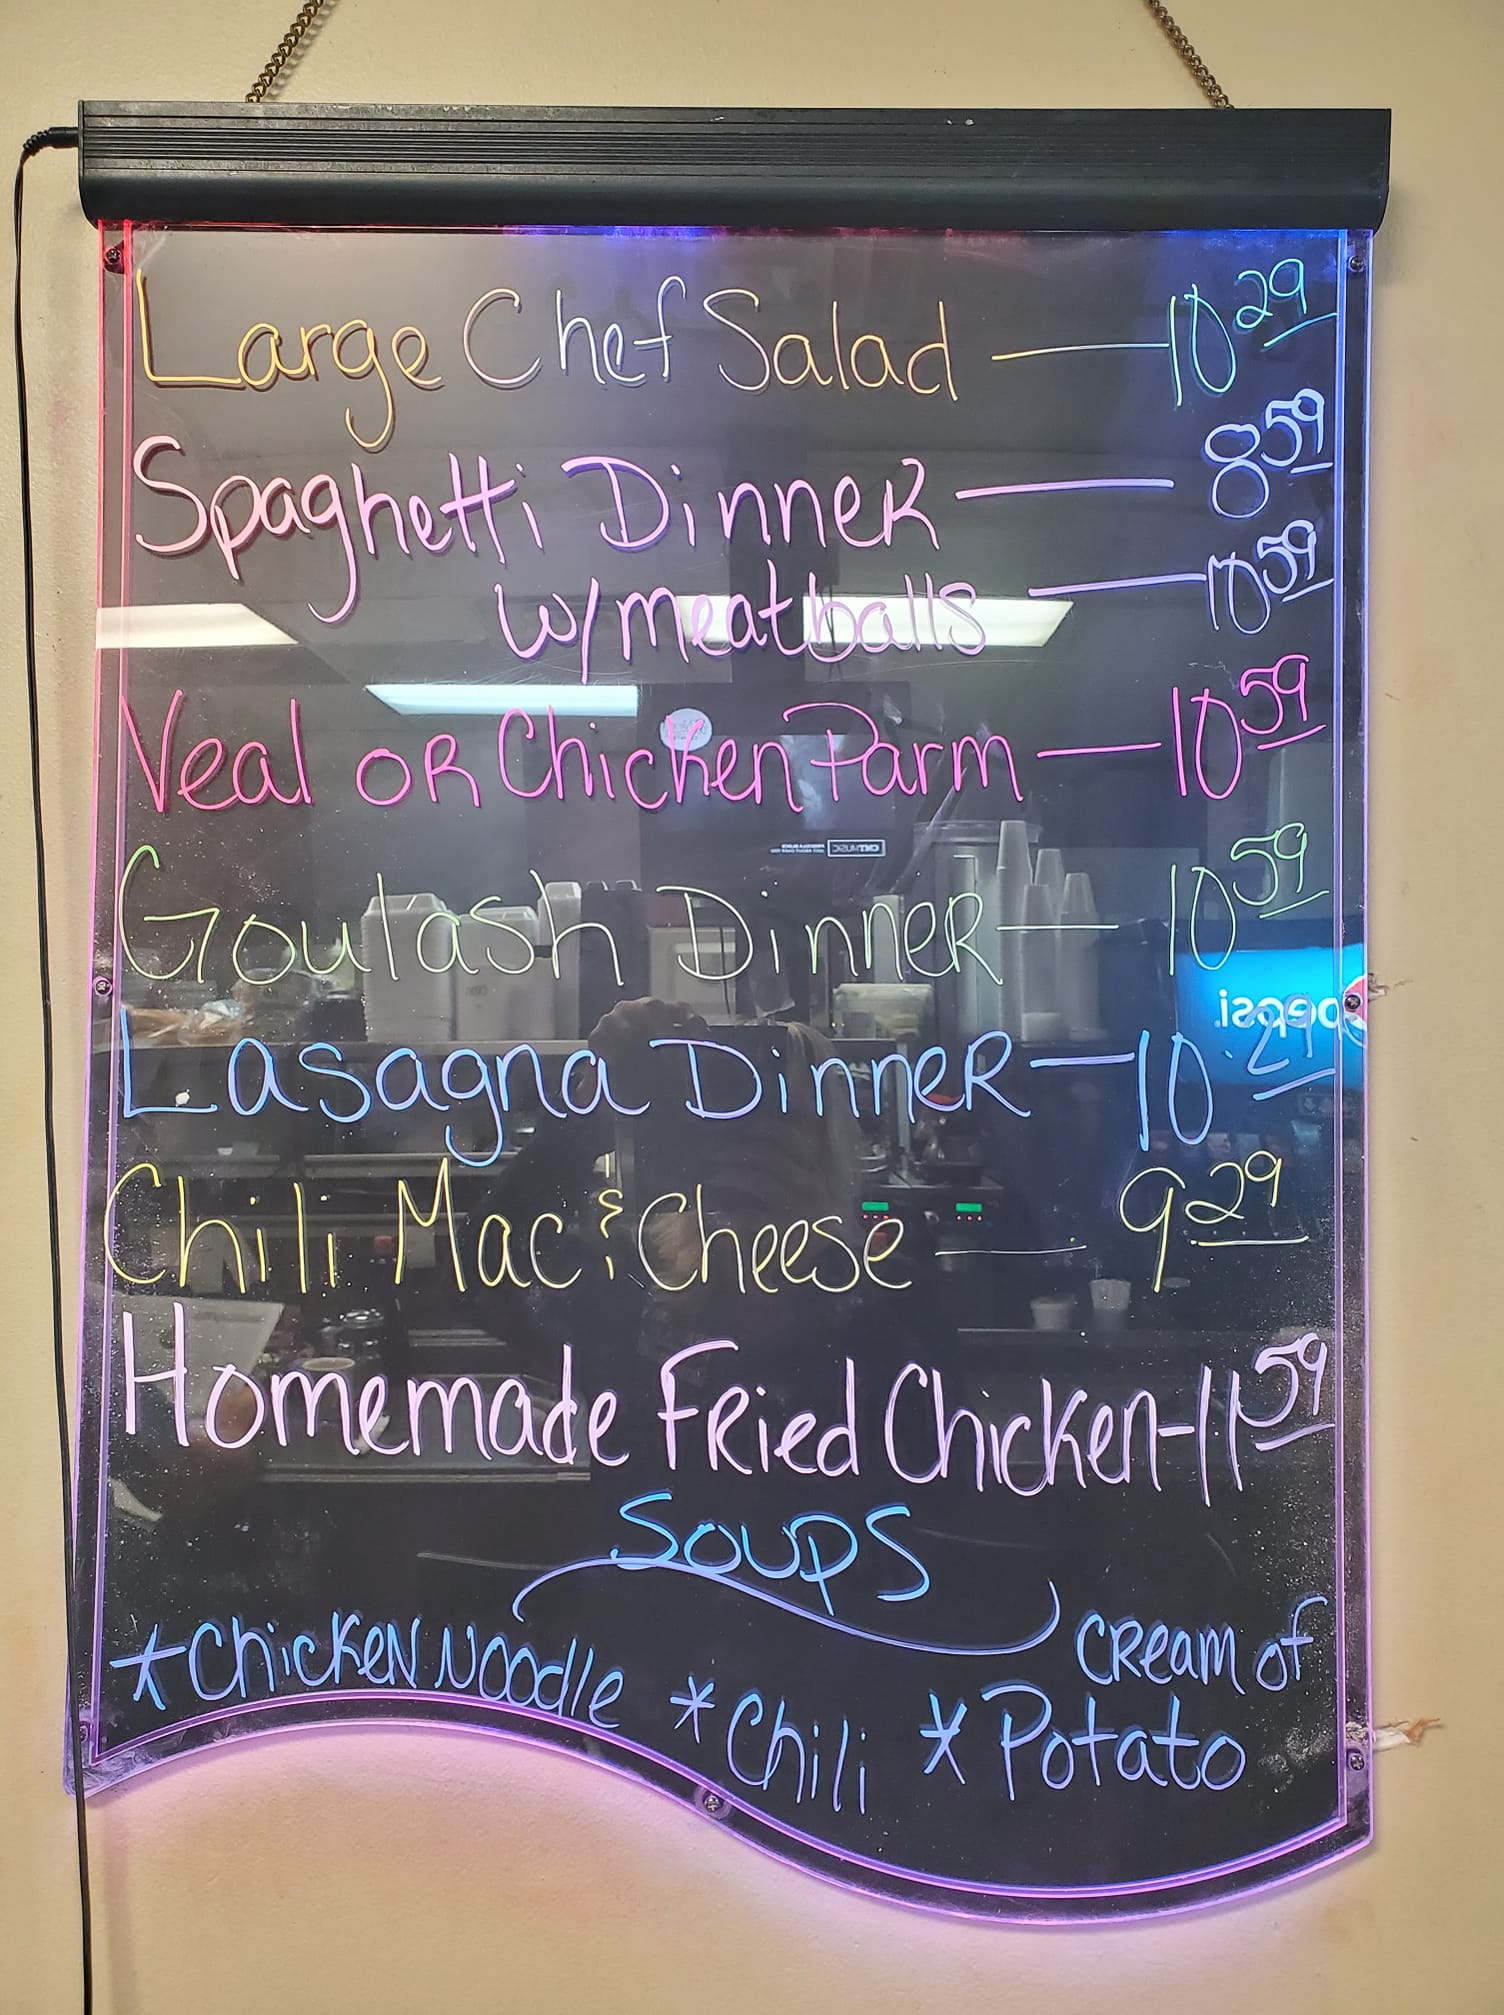 Large Chef Salad — 10 29
Spaghetti Dinner — 8 59
w/meatballs — 10 59
Veal or Chicken Parm — 10 59
Goulash Dinner — 10 59
pepsi
Lasagna Dinner — 10.29
Chili Mac & Cheese — 9 29
Homemade Fried Chicken - 11 59
Soups
* Chicken Noodle * Chili * Cream of Potato